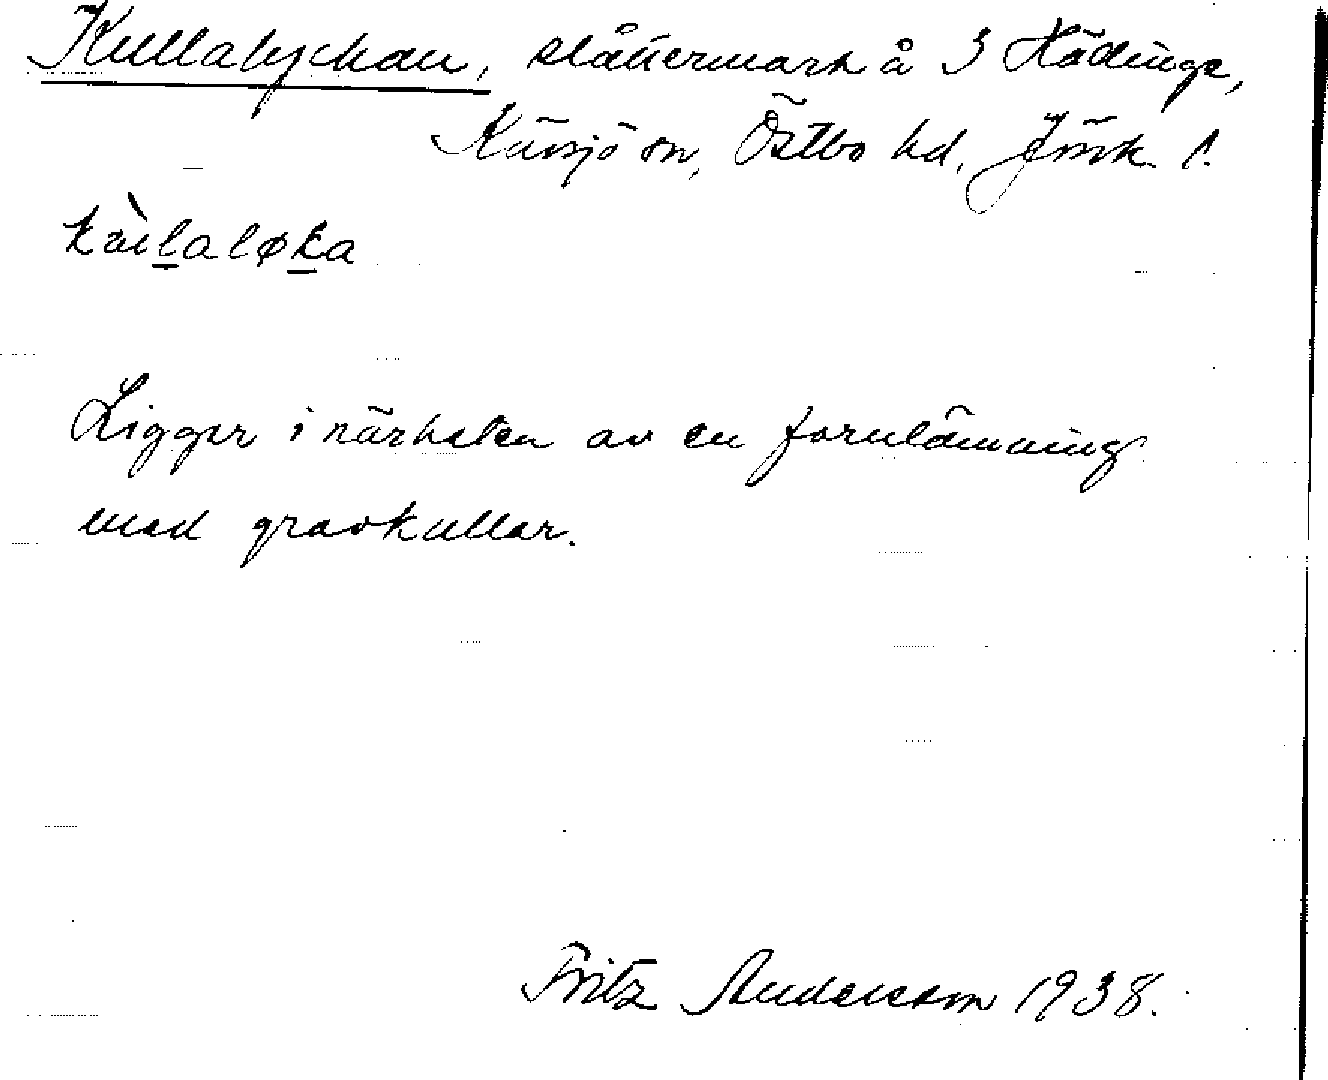 Kullalyckan, slåttermark å 3 Hädinge,
Kävsjö sn, Östbo hd, Jönk. l.
Ligger i närheten av en fornlämning
med gravkullar.
Fritz Andersson 1938.